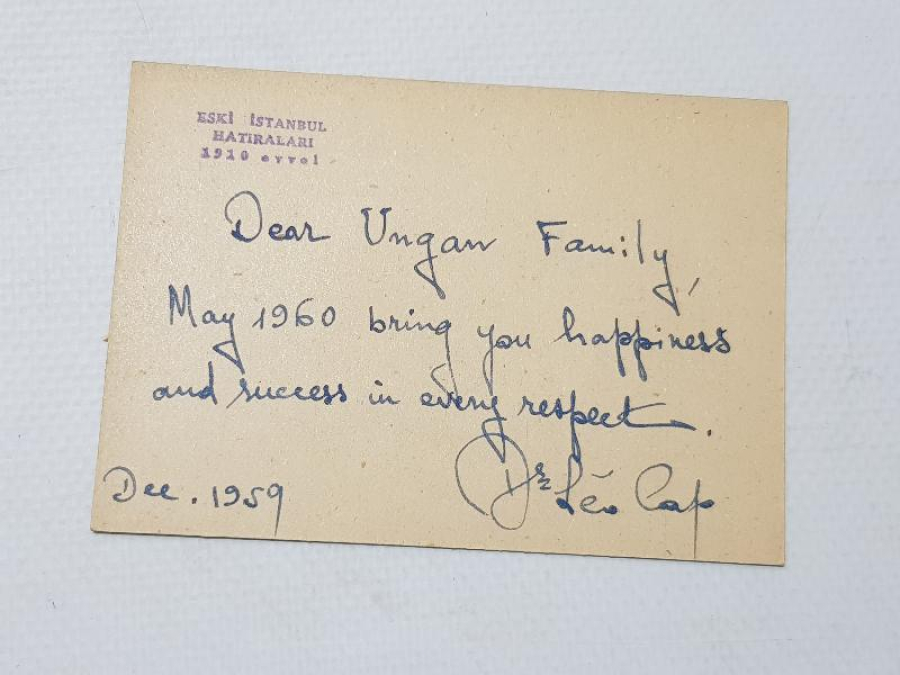 ESKİ İSTANBUL
HATIRALARI
1910 evvel
Dear Ungan Family,
May 1960 bring you happiness
and success in every respect.
Dr Léo Cap
Dec. 1959